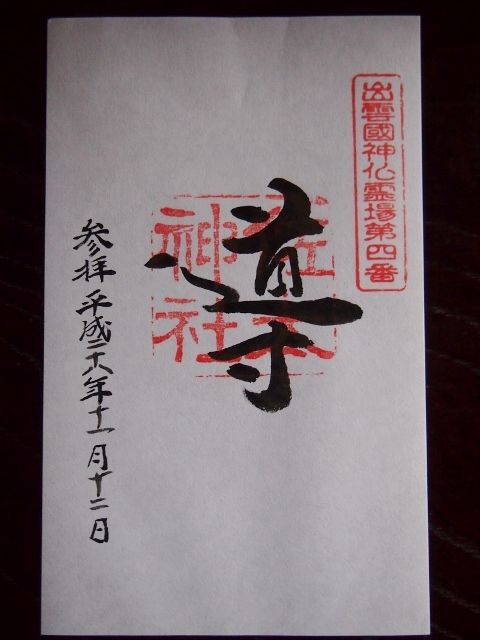 出雲國神仏霊場第四番
導
佐太神社
参拝 平成二十八年十一月十二日